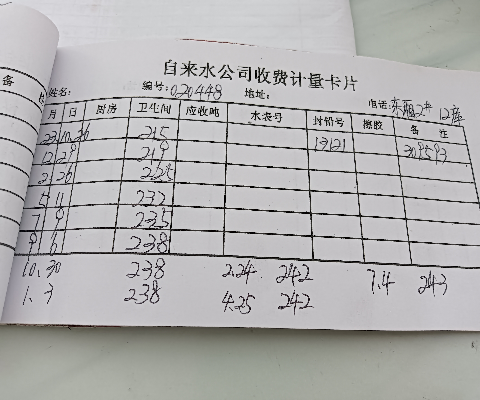 自来水公司收费计量卡片
备
姓名: 编号:020448 地址: 电话:
月 日 厨房 卫生间 应收吨 水表号 封铅号 擦胶 备 注
215 13121 309593
219
2 26 225
5 11 232
7 9 235
9 6 238
10.30 238 2.24 242 7.4 243
1.3 238 4.25 242